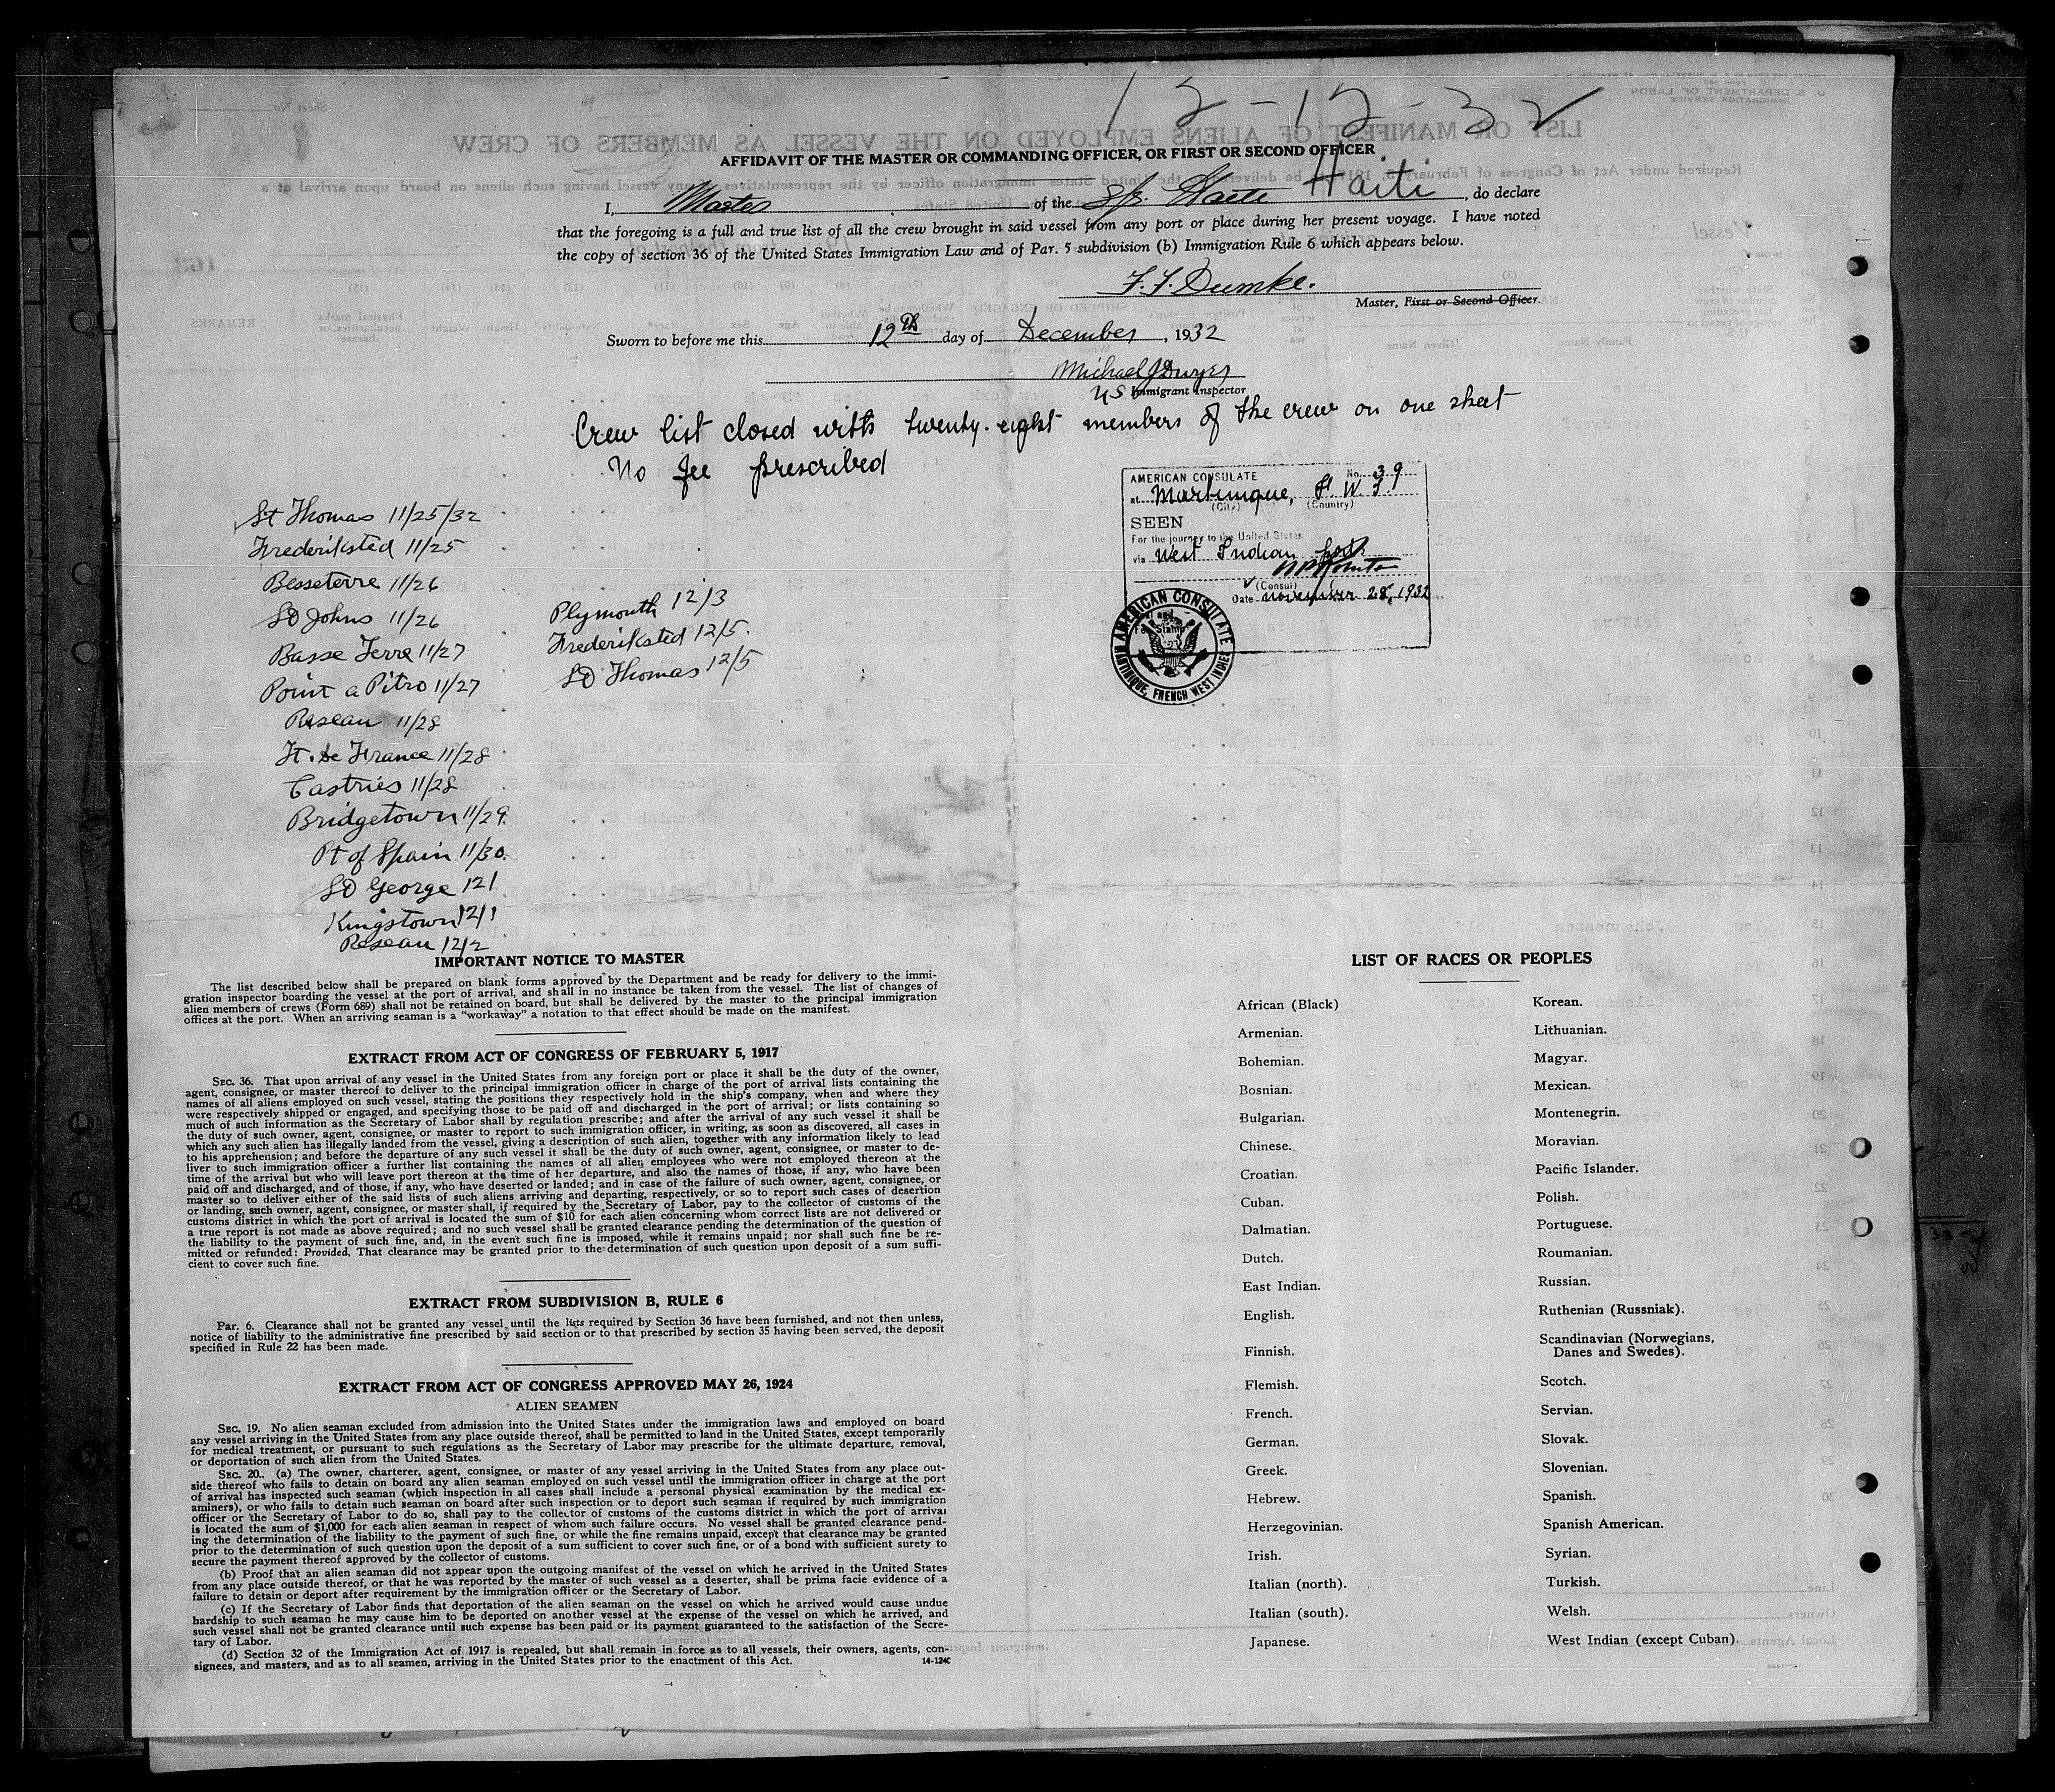 12-12-32
AFFIDAVIT OF THE MASTER OR COMMANDING OFFICER, OR FIRST OR SECOND OFFICER
I, Master of the S/S. Haiti Haiti, do declare
that the foregoing is a full and true list of all the crew brought in said vessel from any port or place during her present voyage. I have noted
the copy of section 36 of the United States Immigration Law and of Par. 5 subdivision (b) Immigration Rule 6 which appears below.
F. F. Dumke.
Master, First or Second Officer.
Sworn to before me this 12th day of December, 1932
Michael J Dwyer
US Immigrant Inspector
Crew list closed with twenty-eight members of the crew on one sheet
No fee prescribed
AMERICAN CONSULATE No. 39
at Martinique, F. W. I.
(City) (Country)
SEEN
For the journey to the United States
via West Indian ports
(Consul)
Date November 28, 1932
AMERICAN CONSULATE
MARTINIQUE, FRENCH WEST INDIES
St Thomas 11/25/32
Frederiksted 11/25
Besseterre 11/26
St Johns 11/26
Basse Terre 11/27
Point a Pitro 11/27
Roseau 11/28
Ft. de France 11/28
Castries 11/28
Bridgetown 11/29.
Pt of Spain 11/30.
St George 12 1
Kingstown 12/1
Roseau 12/2
Plymouth 12/3
Frederiksted 12/5.
St Thomas 12/5
IMPORTANT NOTICE TO MASTER
The list described below shall be prepared on blank forms approved by the Department and be ready for delivery to the immi-
gration inspector boarding the vessel at the port of arrival, and shall in no instance be taken from the vessel. The list of changes of
alien members of crews (Form 689) shall not be retained on board, but shall be delivered by the master to the principal immigration
offices at the port. When an arriving seaman is a “workaway” a notation to that effect should be made on the manifest.
EXTRACT FROM ACT OF CONGRESS OF FEBRUARY 5, 1917
SEC. 36. That upon arrival of any vessel in the United States from any foreign port or place it shall be the duty of the owner,
agent, consignee, or master thereof to deliver to the principal immigration officer in charge of the port of arrival lists containing the
names of all aliens employed on such vessel, stating the positions they respectively hold in the ship's company, when and where they
were respectively shipped or engaged, and specifying those to be paid off and discharged in the port of arrival; or lists containing so
much of such information as the Secretary of Labor shall by regulation prescribe; and after the arrival of any such vessel it shall be
the duty of such owner, agent, consignee, or master to report to such immigration officer, in writing, as soon as discovered, all cases in
which any such alien has illegally landed from the vessel, giving a description of such alien, together with any information likely to lead
to his apprehension; and before the departure of any such vessel it shall be the duty of such owner, agent, consignee, or master to de-
liver to such immigration officer a further list containing the names of all alien employees who were not employed thereon at the
time of the arrival but who will leave port thereon at the time of her departure, and also the names of those, if any, who have been
paid off and discharged, and of those, if any, who have deserted or landed; and in case of the failure of such owner, agent, consignee, or
master so to deliver either of the said lists of such aliens arriving and departing, respectively, or so to report such cases of desertion
or landing, such owner, agent, consignee, or master shall, if required by the Secretary of Labor, pay to the collector of customs of the
customs district in which the port of arrival is located the sum of $10 for each alien concerning whom correct lists are not delivered or
a true report is not made as above required; and no such vessel shall be granted clearance pending the determination of the question of
the liability to the payment of such fine, and, in the event such fine is imposed, while it remains unpaid; nor shall such fine be re-
mitted or refunded: Provided, That clearance may be granted prior to the determination of such question upon deposit of a sum suffi-
cient to cover such fine.
EXTRACT FROM SUBDIVISION B, RULE 6
Par. 6. Clearance shall not be granted any vessel until the lists required by Section 36 have been furnished, and not then unless,
notice of liability to the administrative fine prescribed by said section or to that prescribed by section 35 having been served, the deposit
specified in Rule 22 has been made.
EXTRACT FROM ACT OF CONGRESS APPROVED MAY 26, 1924
ALIEN SEAMEN
SEC. 19. No alien seaman excluded from admission into the United States under the immigration laws and employed on board
any vessel arriving in the United States from any place outside thereof, shall be permitted to land in the United States, except temporarily
for medical treatment, or pursuant to such regulations as the Secretary of Labor may prescribe for the ultimate departure, removal,
or deportation of such alien from the United States.
SEC. 20. (a) The owner, charterer, agent, consignee, or master of any vessel arriving in the United States from any place out-
side thereof who fails to detain on board any alien seaman employed on such vessel until the immigration officer in charge at the port
of arrival has inspected such seaman (which inspection in all cases shall include a personal physical examination by the medical ex-
aminers), or who fails to detain such seaman on board after such inspection or to deport such seaman if required by such immigration
officer or the Secretary of Labor to do so, shall pay to the collector of customs of the customs district in which the port of arrival
is located the sum of $1,000 for each alien seaman in respect of whom such failure occurs. No vessel shall be granted clearance pend-
ing the determination of the liability to the payment of such fine, or while the fine remains unpaid, except that clearance may be granted
prior to the determination of such question upon the deposit of a sum sufficient to cover such fine, or of a bond with sufficient surety to
secure the payment thereof approved by the collector of customs.
(b) Proof that an alien seaman did not appear upon the outgoing manifest of the vessel on which he arrived in the United States
from any place outside thereof, or that he was reported by the master of such vessel as a deserter, shall be prima facie evidence of a
failure to detain or deport after requirement by the immigration officer or the Secretary of Labor.
(c) If the Secretary of Labor finds that deportation of the alien seaman on the vessel on which he arrived would cause undue
hardship to such seaman he may cause him to be deported on another vessel at the expense of the vessel on which he arrived, and
such vessel shall not be granted clearance until such expense has been paid or its payment guaranteed to the satisfaction of the Secre-
tary of Labor.
(d) Section 32 of the Immigration Act of 1917 is repealed, but shall remain in force as to all vessels, their owners, agents, con-
signees, and masters, and as to all seamen, arriving in the United States prior to the enactment of this Act.
14-1240
LIST OF RACES OR PEOPLES
African (Black)
Armenian.
Bohemian.
Bosnian.
Bulgarian.
Chinese.
Croatian.
Cuban.
Dalmatian.
Dutch.
East Indian.
English.
Finnish.
Flemish.
French.
German.
Greek.
Hebrew.
Herzegovinian.
Irish.
Italian (north).
Italian (south).
Japanese.
Korean.
Lithuanian.
Magyar.
Mexican.
Montenegrin.
Moravian.
Pacific Islander.
Polish.
Portuguese.
Roumanian.
Russian.
Ruthenian (Russniak).
Scandinavian (Norwegians,
Danes and Swedes).
Scotch.
Servian.
Slovak.
Slovenian.
Spanish.
Spanish American.
Syrian.
Turkish.
Welsh.
West Indian (except Cuban).